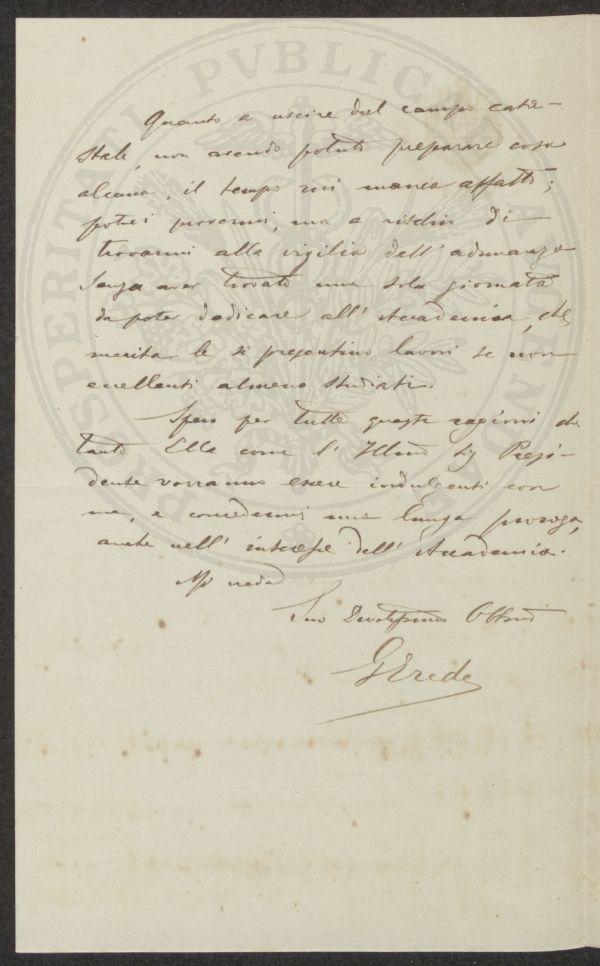 Quanto a uscire dal campo cata-
stale, non avendo potuto preparare cosa
alcuna, il tempo mi manca affatto;
potrei provarmi, ma a rischio di
trovarmi alla vigilia dell' adunanza
senza aver trovato una sola giornata
da poter dedicare all' Accademia, che
merita le si presentino lavori se non
eccellenti almeno studiati.
Spero per tutte queste ragioni che
tanto Ella come l' Illmo Sig Presi-
dente vorranno essere indulgenti con
me, e concedermi una lunga proroga,
anche nell' interesse dell' Accademia.
Mi creda
Suo Devotissimo Obbmo
GErede
PROSPERITATI PVBLICAE AVGENDAE